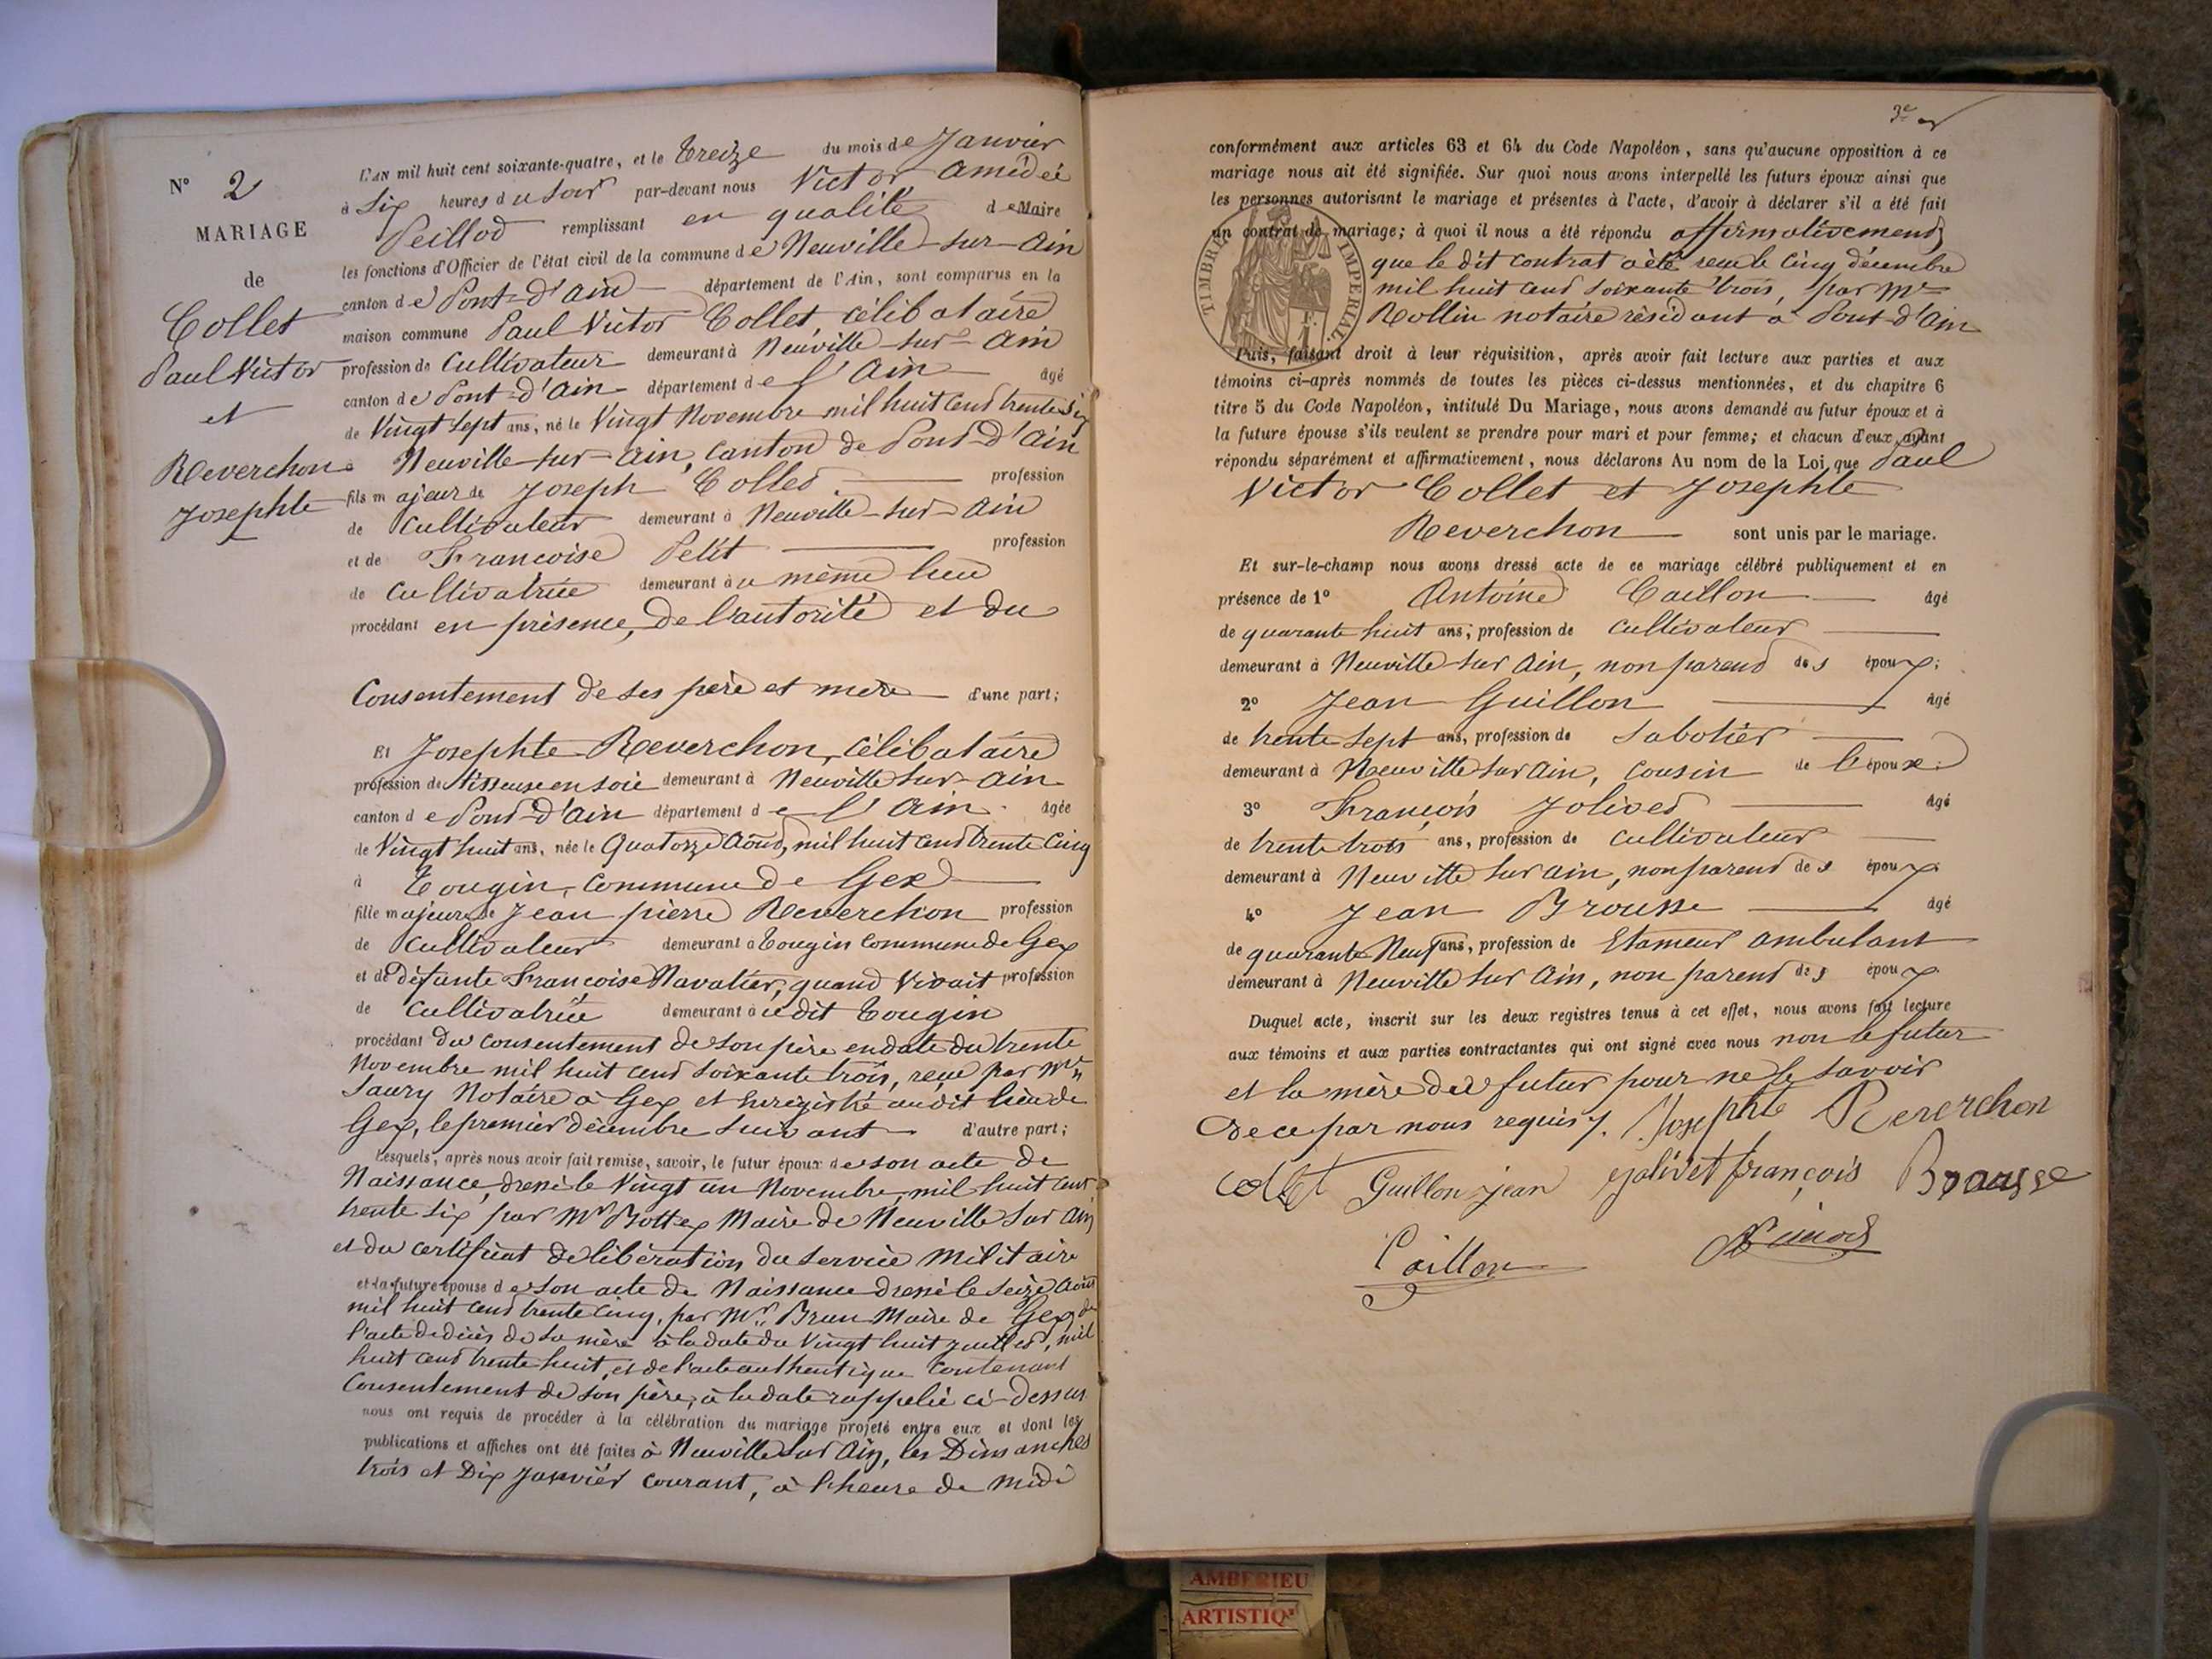 N° 2
MARIAGE
de
Collet
Paul Victor
et
Reverchon
Josephte
L'AN mil huit cent soixante-quatre, et le treize du mois de Janvier
à Six heures du Soir par-devant nous Victor Amédée
Peillod remplissant en qualité de Maire
les fonctions d'Officier de l'état civil de la commune de Neuville-sur-Ain
canton de Pont-d'Ain département de l'Ain, sont comparus en la
maison commune Paul Victor Collet célibataire
profession de Cultivateur demeurant à Neuville-sur-Ain
canton de Pont-d'Ain département de l'Ain âgé
de Vingt sept ans, né le Vingt Novembre mil huit cent trente six
à Neuville-sur-Ain, Canton de Pont-d'Ain
fils majeur de Joseph Collet profession
de Cultivateur demeurant à Neuville-sur-Ain
et de Francoise Petit profession
de Cultivatrice demeurant au même lieu
procédant en présence, de l'autorité et du
Consentement de ses père et mère d'une part;
Et Josephte Reverchon, célibataire
profession de tisseuse en soie demeurant à Neuville sur-Ain
canton de Pont-d'Ain département de l'Ain âgée
de Vingt huit ans, née le Quatorze Août, mil huit cent trente cinq
à Tougin, commune de Gex
fille majeure de Jean pierre Reverchon profession
de Cultivateur demeurant à Tougin commune de Gex
et de défunte Françoise Navatier, quand Vivait profession
de Cultivatrice demeurant au dit Tougin
procédant du consentement de son père en date du trente
Novembre mil huit cent soixante trois, reçu par Mr
Saury Notaire à Gex et enregistré audit lieu de
Gex, le premier décembre suivant d'autre part;
Lesquels, après nous avoir fait remise, savoir, le futur époux de son acte de
Naissance, dressé le Vingt un Novembre mil huit cent
trente six par Mr Bottex Maire de Neuville sur Ain
et du certificat de libération du service militaire
et la future épouse de son acte de Naissance dressé le seize Août
mil huit cent trente cinq, par Mr Brun Maire de Gex, de
l'acte de décès de sa mère à la date du Vingt huit juillet, mil
huit cent trente huit, et de l'acte authentique contenant
Consentement de son père, à la date rappelée ci-dessus
nous ont requis de procéder à la célébration du mariage projeté entre eux et dont les
publications et affiches ont été faites à Neuville sur Ain, les Dimanches
trois et Dix Janvier courant, à l'heure de midi
3e
conformément aux articles 63 et 64 du Code Napoléon, sans qu'aucune opposition à ce
mariage nous ait été signifiée. Sur quoi nous avons interpellé les futurs époux ainsi que
les personnes autorisant le mariage et présentes à l'acte, d'avoir à déclarer s'il a été fait
un contrat de mariage; à quoi il nous a été répondu affirmativement
que le dit contrat a été reçu le Cinq décembre
mil huit cent soixante trois, par Me
Rollin notaire résidant à Pont-d'Ain
TIMBRE IMPERIAL
Puis, faisant droit à leur réquisition, après avoir fait lecture aux parties et aux
témoins ci-après nommés de toutes les pièces ci-dessus mentionnées, et du chapitre 6
titre 5 du Code Napoléon, intitulé Du Mariage, nous avons demandé au futur époux et à
la future épouse s'ils veulent se prendre pour mari et pour femme; et chacun d'eux ayant
répondu séparément et affirmativement, nous déclarons Au nom de la Loi que Paul
Victor Collet et Josephte
Reverchon sont unis par le mariage.
Et sur-le-champ nous avons dressé acte de ce mariage célébré publiquement et en
présence de 1° Antoine Caillon âgé
de quarante huit ans, profession de Cultivateur
demeurant à Neuville sur Ain, non parent des époux;
2° Jean Guillon âgé
de trente sept ans, profession de Sabotier
demeurant à Neuville sur Ain, cousin de l'époux;
3° François Jolivet âgé
de trente trois ans, profession de Cultivateur
demeurant à Neuville sur Ain, non parent des époux
4° Jean Brousse âgé
de quarante Neuf ans, profession de Etameur ambulant
demeurant à Neuville sur Ain, non parent des époux
Duquel acte, inscrit sur les deux registres tenus à cet effet, nous avons fait lecture
aux témoins et aux parties contractantes qui ont signé avec nous non le futur
et la mère du futur pour ne le savoir
de ce par nous requis. Josephte Reverchon
Collet Guillon jean jolivet françois Brousse
Caillon
AMBERIEU
ARTISTIQ